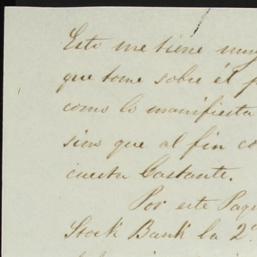 Esto me tiene muy
que tome sobre él
como lo manifiesta
sion que al fin co
cuesta bastante.
Por este Paq
Stock Bank la 2ª